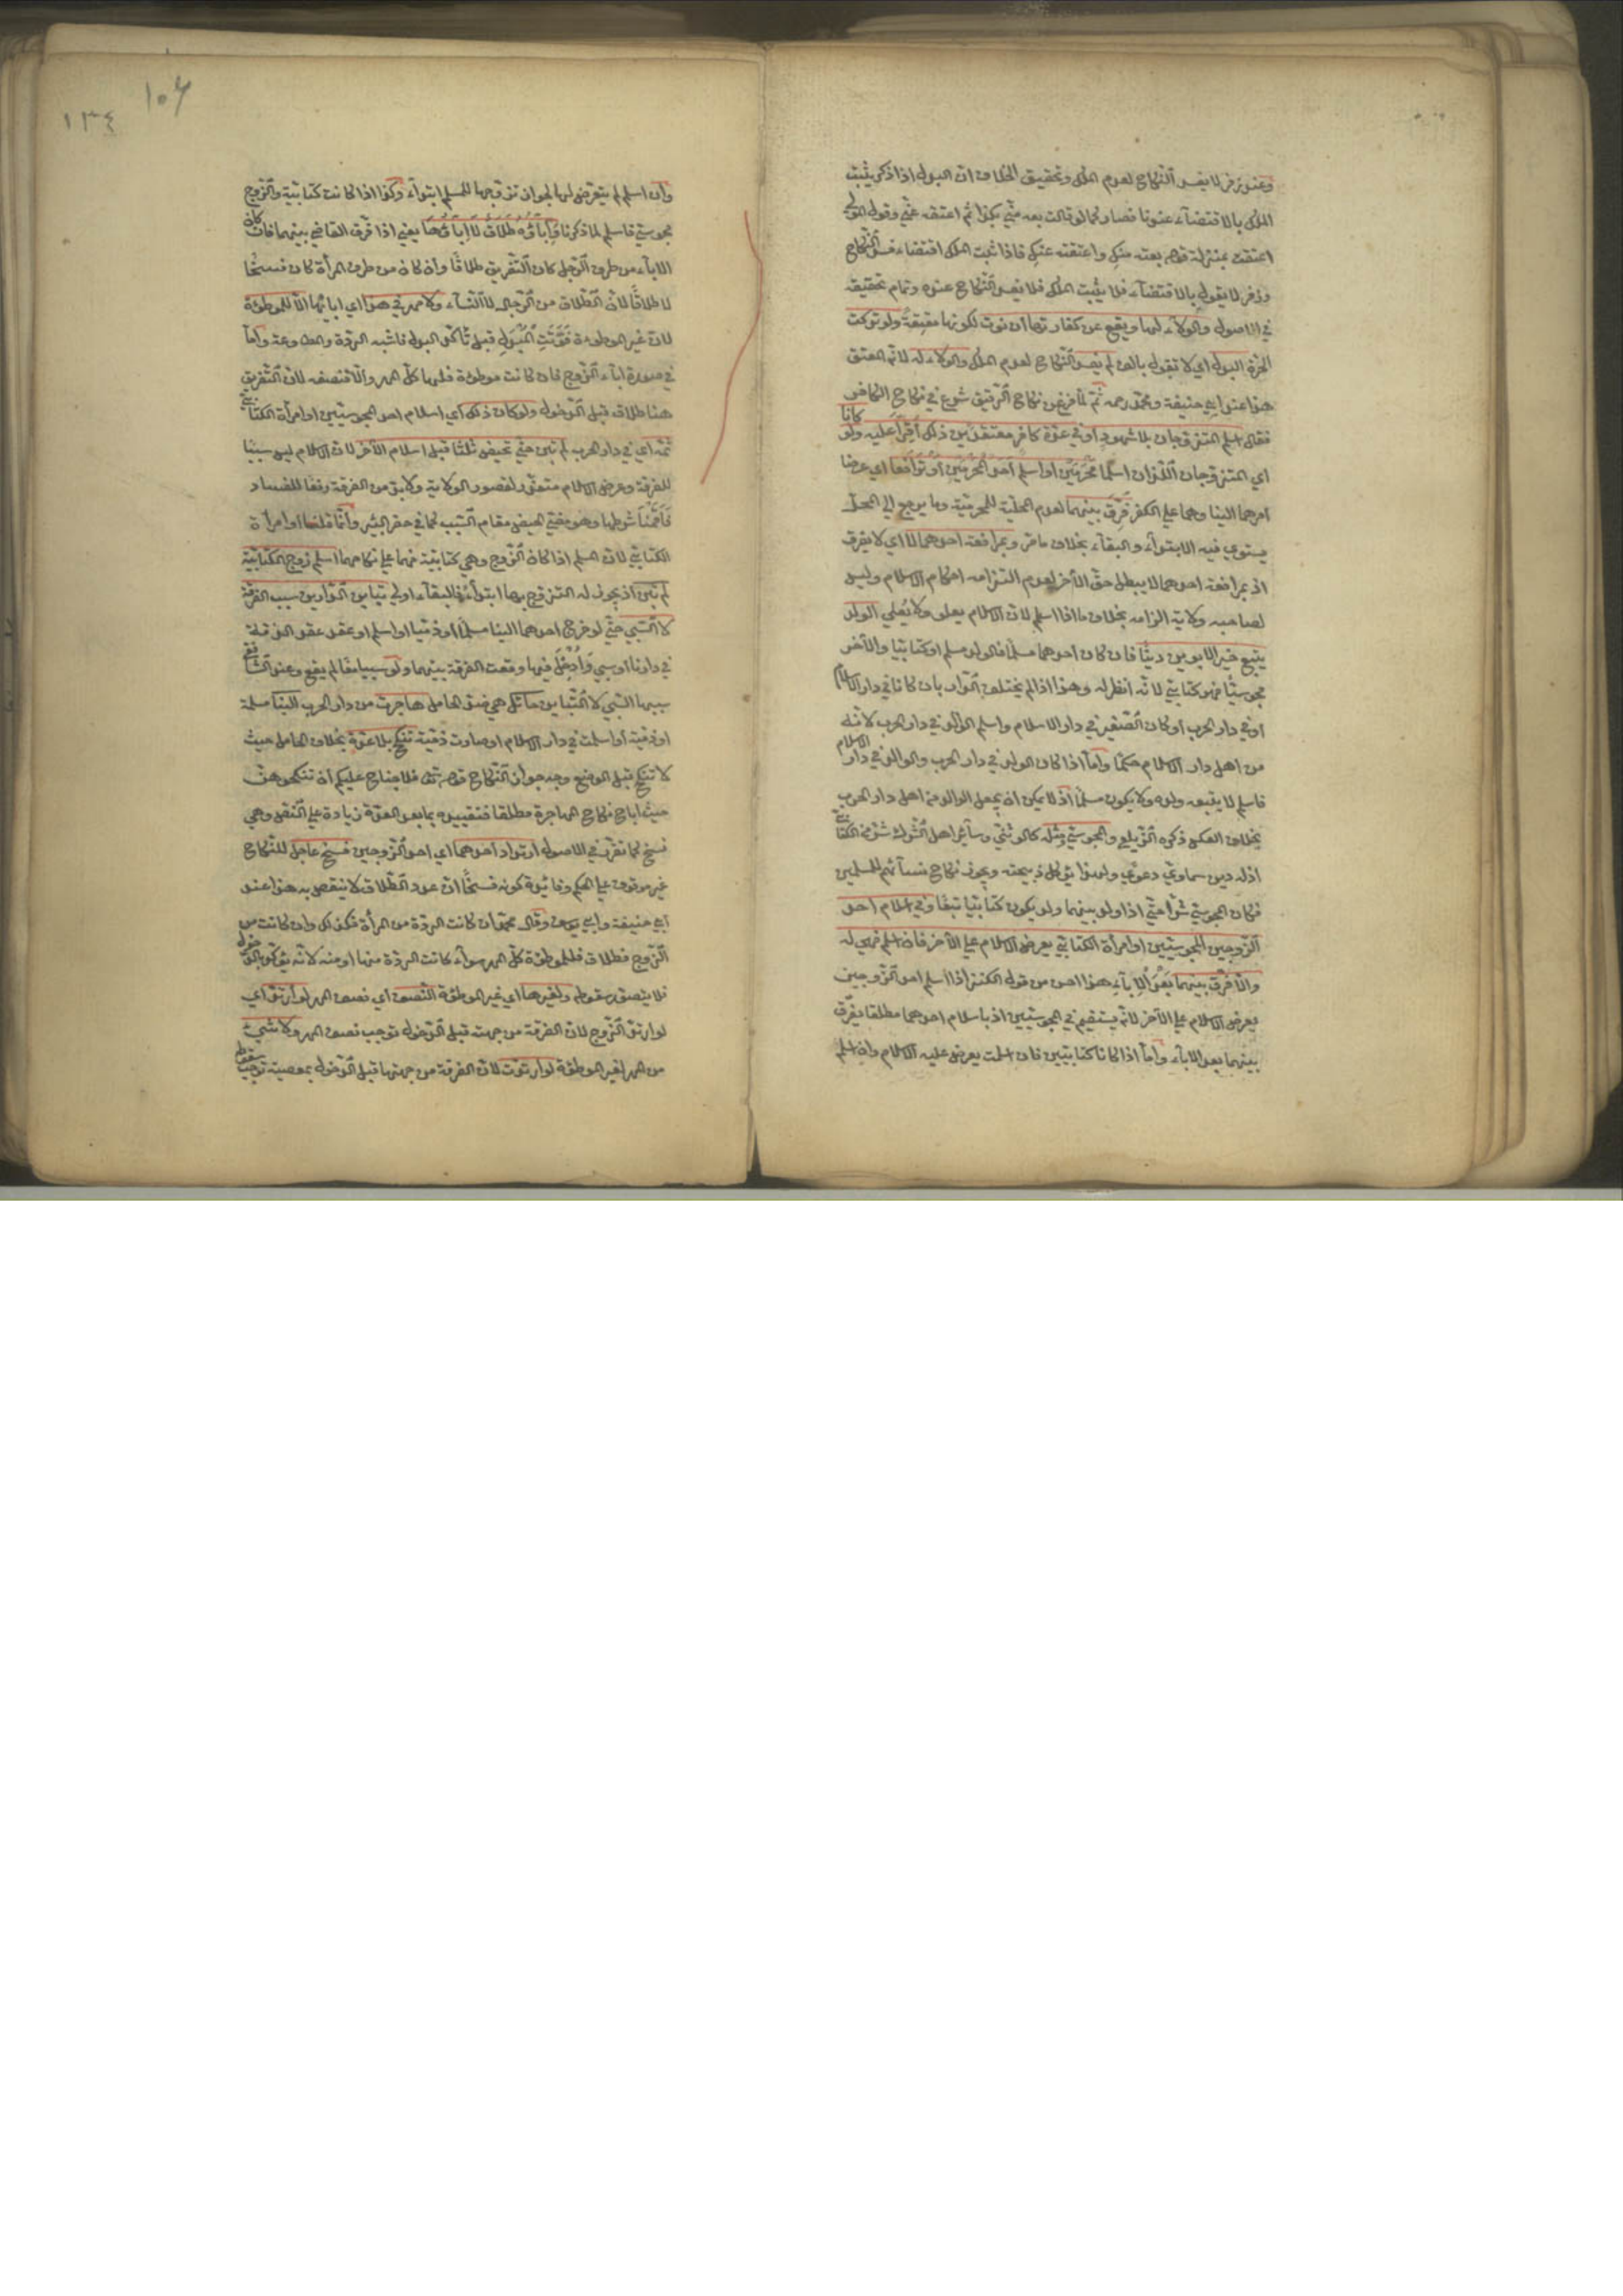 وعند زفر لا يفسد النكاح لعدم الملك وتحقيق الخلاف ان البدل اذا ذكر يثبت
الملك بالاقتضاء عندنا فصار كما لو قالت بعه مني بكذا ثم اعتقه عني وقول المولى
اعتقت بمنزلة قوله بعته منك واعتقته عنك فاذا ثبت الملك اقتضاء فسد النكاح
وزفر لا يقول بالاقتضاء فلا يثبت الملك فلا يفسد النكاح عنده وتمام تحقيقه
في الاصول والولاء لها ويقع عن كفارتها ان نوت لكونها معتقة ولو تركت
الحرة البدل اي لا تقول بالف لم يفسد النكاح لعدم الملك والولاء له لانه المعتق
هذا عند ابي حنيفة ومحمد رحمه ثم لما فرغ من نكاح الرقيق شرع في نكاح الكافر
فقال اسلم المتزوجان بلا شهود او في عدة كافر معتقدين ذلك اقرا عليه ولو كانا
اي المتزوجان اللذان اسلما محرمين او اسلم احد المحرمين او ترافعا اي عرضا
امرهما الينا وهما على الكفر فرق بينهما لعدم المحلية للمحرمية وما يرجع الى المحل
يستوي فيه الابتداء والبقاء بخلاف ما مر وبمرافعة احدهما لا اي لا يفرق
اذ بمرافعة احدهما لا يبطل حق الآخر لعدم التزامه احكام الاسلام وليس
لصاحبه ولاية الزامه بخلاف ما اذا اسلم لان الاسلام يعلو ولا يعلى الولد
يتبع خير الابوين دينا فان كان احدهما مسلما فالولد مسلم او كتابيا والآخر
مجوسيا فهو كتابي لانه انظر له وهذا اذا لم يختلف الدار بان كانا في دار الاسلام
او في دار الحرب او كان الصغير في دار الاسلام واسلم الوالد في دار الحرب لانه
من اهل دار الاسلام حكما واما اذا كان الولد في دار الحرب والوالد في دار الاسلام
فاسلم لا يتبعه ولده ولا يكون مسلما اذ لا يمكن ان يجعل الوالد من اهل دار الحرب
بخلاف العكس ذكره الزيلعي والمجوسي ومثله كالوثني وسائر اهل الشرك شر من الكتابي
اذ له دين سماوي دعوى ولهذا يؤكل ذبيحته ويجوز نكاح نسائهم للمسلمين
فكان المجوسي شرا حتى اذا ولد بينهما ولد يكون كتابيا تبعا وفي اسلام احد
الزوجين المجوسيين او امرأة الكتابي يعرض الاسلام على الآخر فان اسلم فهي له
والا فرق بينهما بعد الاباء هذا احسن من قول الكنز اذا اسلم احد الزوجين
يعرض الاسلام على الآخر لانه يستقيم في المجوسيين اذ باسلام احدهما مطلقا يفرق
بينهما بعد الاباء واما اذا كانا كتابيين فان اسلمت يعرض عليه الاسلام وان اسلم
١٠٦
١٣٤
وان اسلم لم يتعرض لها لجواز تزوجها للمسلم ابتداء وكذا اذا كانت كتابية والزوج
مجوسي فاسلم لما ذكرنا واباؤه طلاق لا اباؤها يعني اذا فرق القاضي بينهما فان كان
الاباء من طرف الرجل كان التفريق طلاقا وان كان من طرف المرأة كان فسخا
لا طلاقا لان الطلاق من الرجال لا النساء ولا مهر في هذا اي ابائها الا للموطوءة
لان غير الموطوءة فوتت المبدل قبل تأكد البدل فاشبه الردة والمطاوعة واما
في صورة اباء الزوج فان كانت موطوءة فلها كل المهر والا فنصفه لان التفريق
هنا طلاق قبل الدخول ولو كان ذلك اي اسلام احد المجوسيين او امرأة الكتابي
ثمه اي في دار الحرب لم تبن حتى تحيض ثلثا قبل اسلام الآخر لان الاسلام ليس سببا
للفرقة وعرض الاسلام متعذر لقصور الولاية ولا بد من الفرقة رفعا للفساد
فاقمنا شرطها وهو مضي الحيض مقام السبب كما في حفر البئر وانما قلنا او امرأة
الكتابي لان المسلم اذا كان الزوج وهي كتابية فهما على نكاحهما اسلم زوج الكتابية
لم تبن اذ يجوز له التزوج بها ابتداء فالبقاء اولى تباين الدارين سبب الفرقة
لا السبي حتى لو خرج احدهما الينا مسلما او ذميا او اسلم او عقد عقد الذمة
في دارنا او سبي وادخل فيها وقعت الفرقة بينهما ولو سبيا معا لم يقع وعند الشافعي
سببها السبي لا التباين حائل هي ضد الحامل هاجرت من دار الحرب الينا مسلمة
او ذمية او اسلمت في دار الاسلام او صارت ذمية تنكح بلا عدة بخلاف الحامل حيث
لا تنكح قبل الوضع وجه جواز النكاح قوله تعالى فلا جناح عليكم ان تنكحوهن
حيث اباح نكاح المهاجرة مطلقا فتقييده بما بعد العدة زيادة على النص وهي
نسخ كما تقرر في الاصول ارتداد احدهما اي احد الزوجين فسخ عاجل للنكاح
غير موقوف على الحكم وفائدة كونه فسخا ان عدد الطلاق لا ينتقص به هذا عند
ابي حنيفة وابي يوسف وقال محمد ان كانت الردة من المرأة فكذلك وان كانت من
الزوج فطلاق فللموطوءة كل المهر سواء كانت الردة منها او منه لانه يؤكد بالدخول
فلا يتصور سقوطه ولغيرها اي غير الموطوءة النصف اي نصف المهر لو ارتد اي
لو ارتد الزوج لان الفرقة من جهته قبل الدخول توجب نصف المهر ولا شيء
من المهر لغير الموطوءة لو ارتدت لان الفرقة من جهتها قبل الدخول بمعصية توجب سقوط